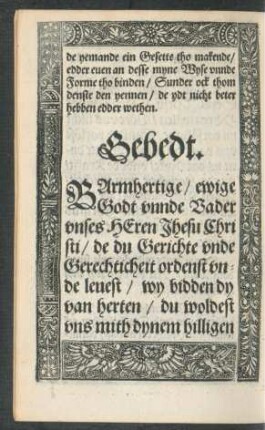 de yemande ein Gesette tho makende/
edder euen an desse myne Wyse vnnde
Forme tho binden/ Sunder ock thom
denste den yennen/ de ydt nicht beter
hebben edder wethen.
Gebedt.
BArmhertige/ ewige
Godt vnnde Vader
vnses HEren Jhesu Chri
sti/ de du Gerichte vnde
Gerechticheit ordenst vn-
de leuest/ wy bidden dy
van herten/ du woldest
vns mith dynem hilligen